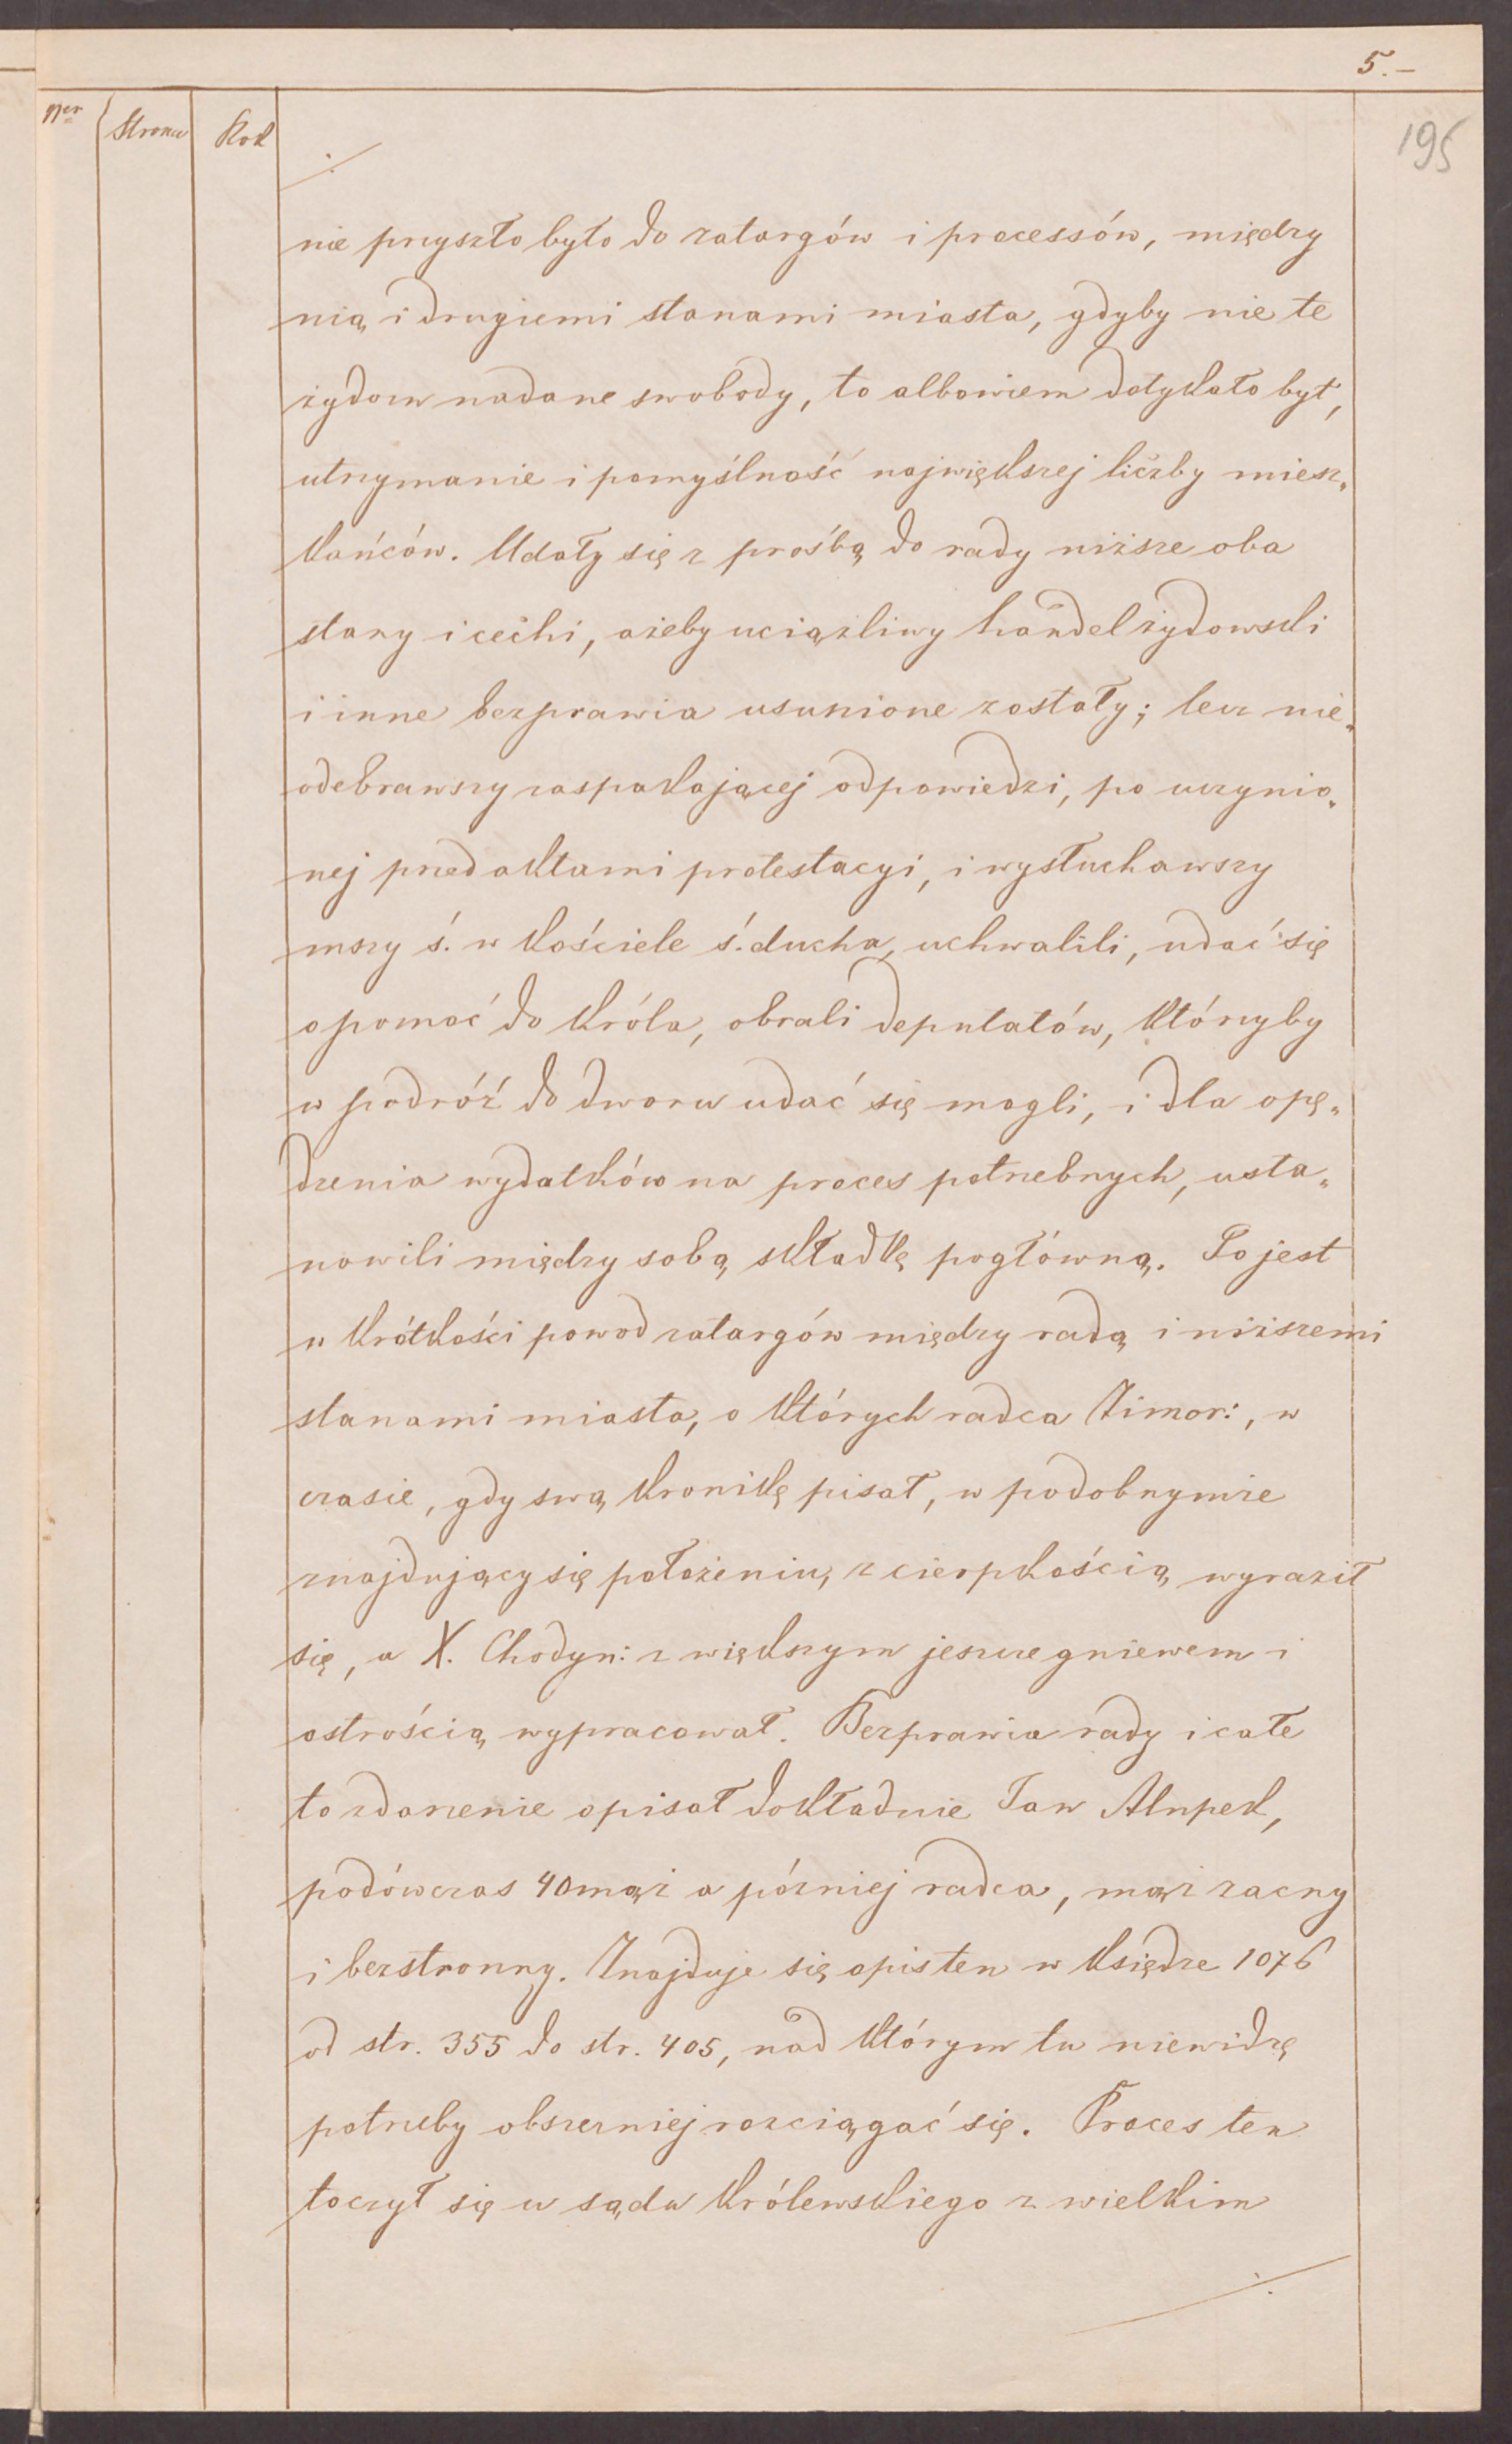 5.–
195
Ner Strona Rok
./.
nie przyszło było do zatargów i processów, między
nią i drugiemi stanami miasta, gdyby nie te
żydom nadane swobody, to albowiem dotykało był,
utrzymanie i pomyślność największej liczby miesz„
kańców. Udały się z prośbą do rady niższe oba
stany i cechi, ażeby uciążliwy handel żydowski
i inne bezprawia usunione zostały; lecz nie„
odebrawszy zaspakajającej odpowiedzi, po uczynio„
nej przed aktami protestacyi, i wysłuchawszy
mszy ś. w kościele ś. ducha, uchwalili, udać się
o pomoc do króla, obrali deputatów, którzyby
w podróż do dworu udać się mogli, i dla opę„
dzenia wydatków na proces potrzebnych, usta„
nowili między sobą składkę pogłówną. To jest
w krótkości powod zatargów między radą i niższemi
stanami miasta, o których radca Zimor:, w
czasie, gdy swą kronikę pisał, w podobnymże
znajdujący się położeniu, z cierpkością wyraził
się, a X. Chodyn: z większym jeszcze gniewem i
ostrością wypracował. Bezprawia rady i całe
to zdarzenie opisał dokładnie Jan Alnpek,
podówczas 40mąż a później radca, mąż zacny
i bezstronny. Znajduje się opis ten w księdze 1076
od str. 355 do str. 405, nad którym tu niewidzę
potrzeby obszerniej rozciągać się. Proces ten
toczył się u sądu królewskiego z wielkim
./.